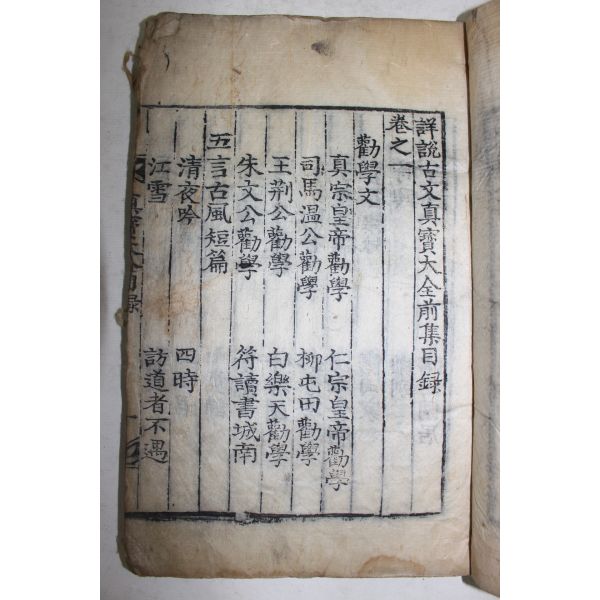 詳說古文真寶大全前集目録
卷之一
勸學文
真宗皇帝勸學 仁宗皇帝勸學
司馬溫公勸學 柳屯田勸學
王荆公勸學 白樂天勸學
朱文公勸學 符讀書城南
五言古風短篇
清夜吟 四時
江雪 訪道者不遇